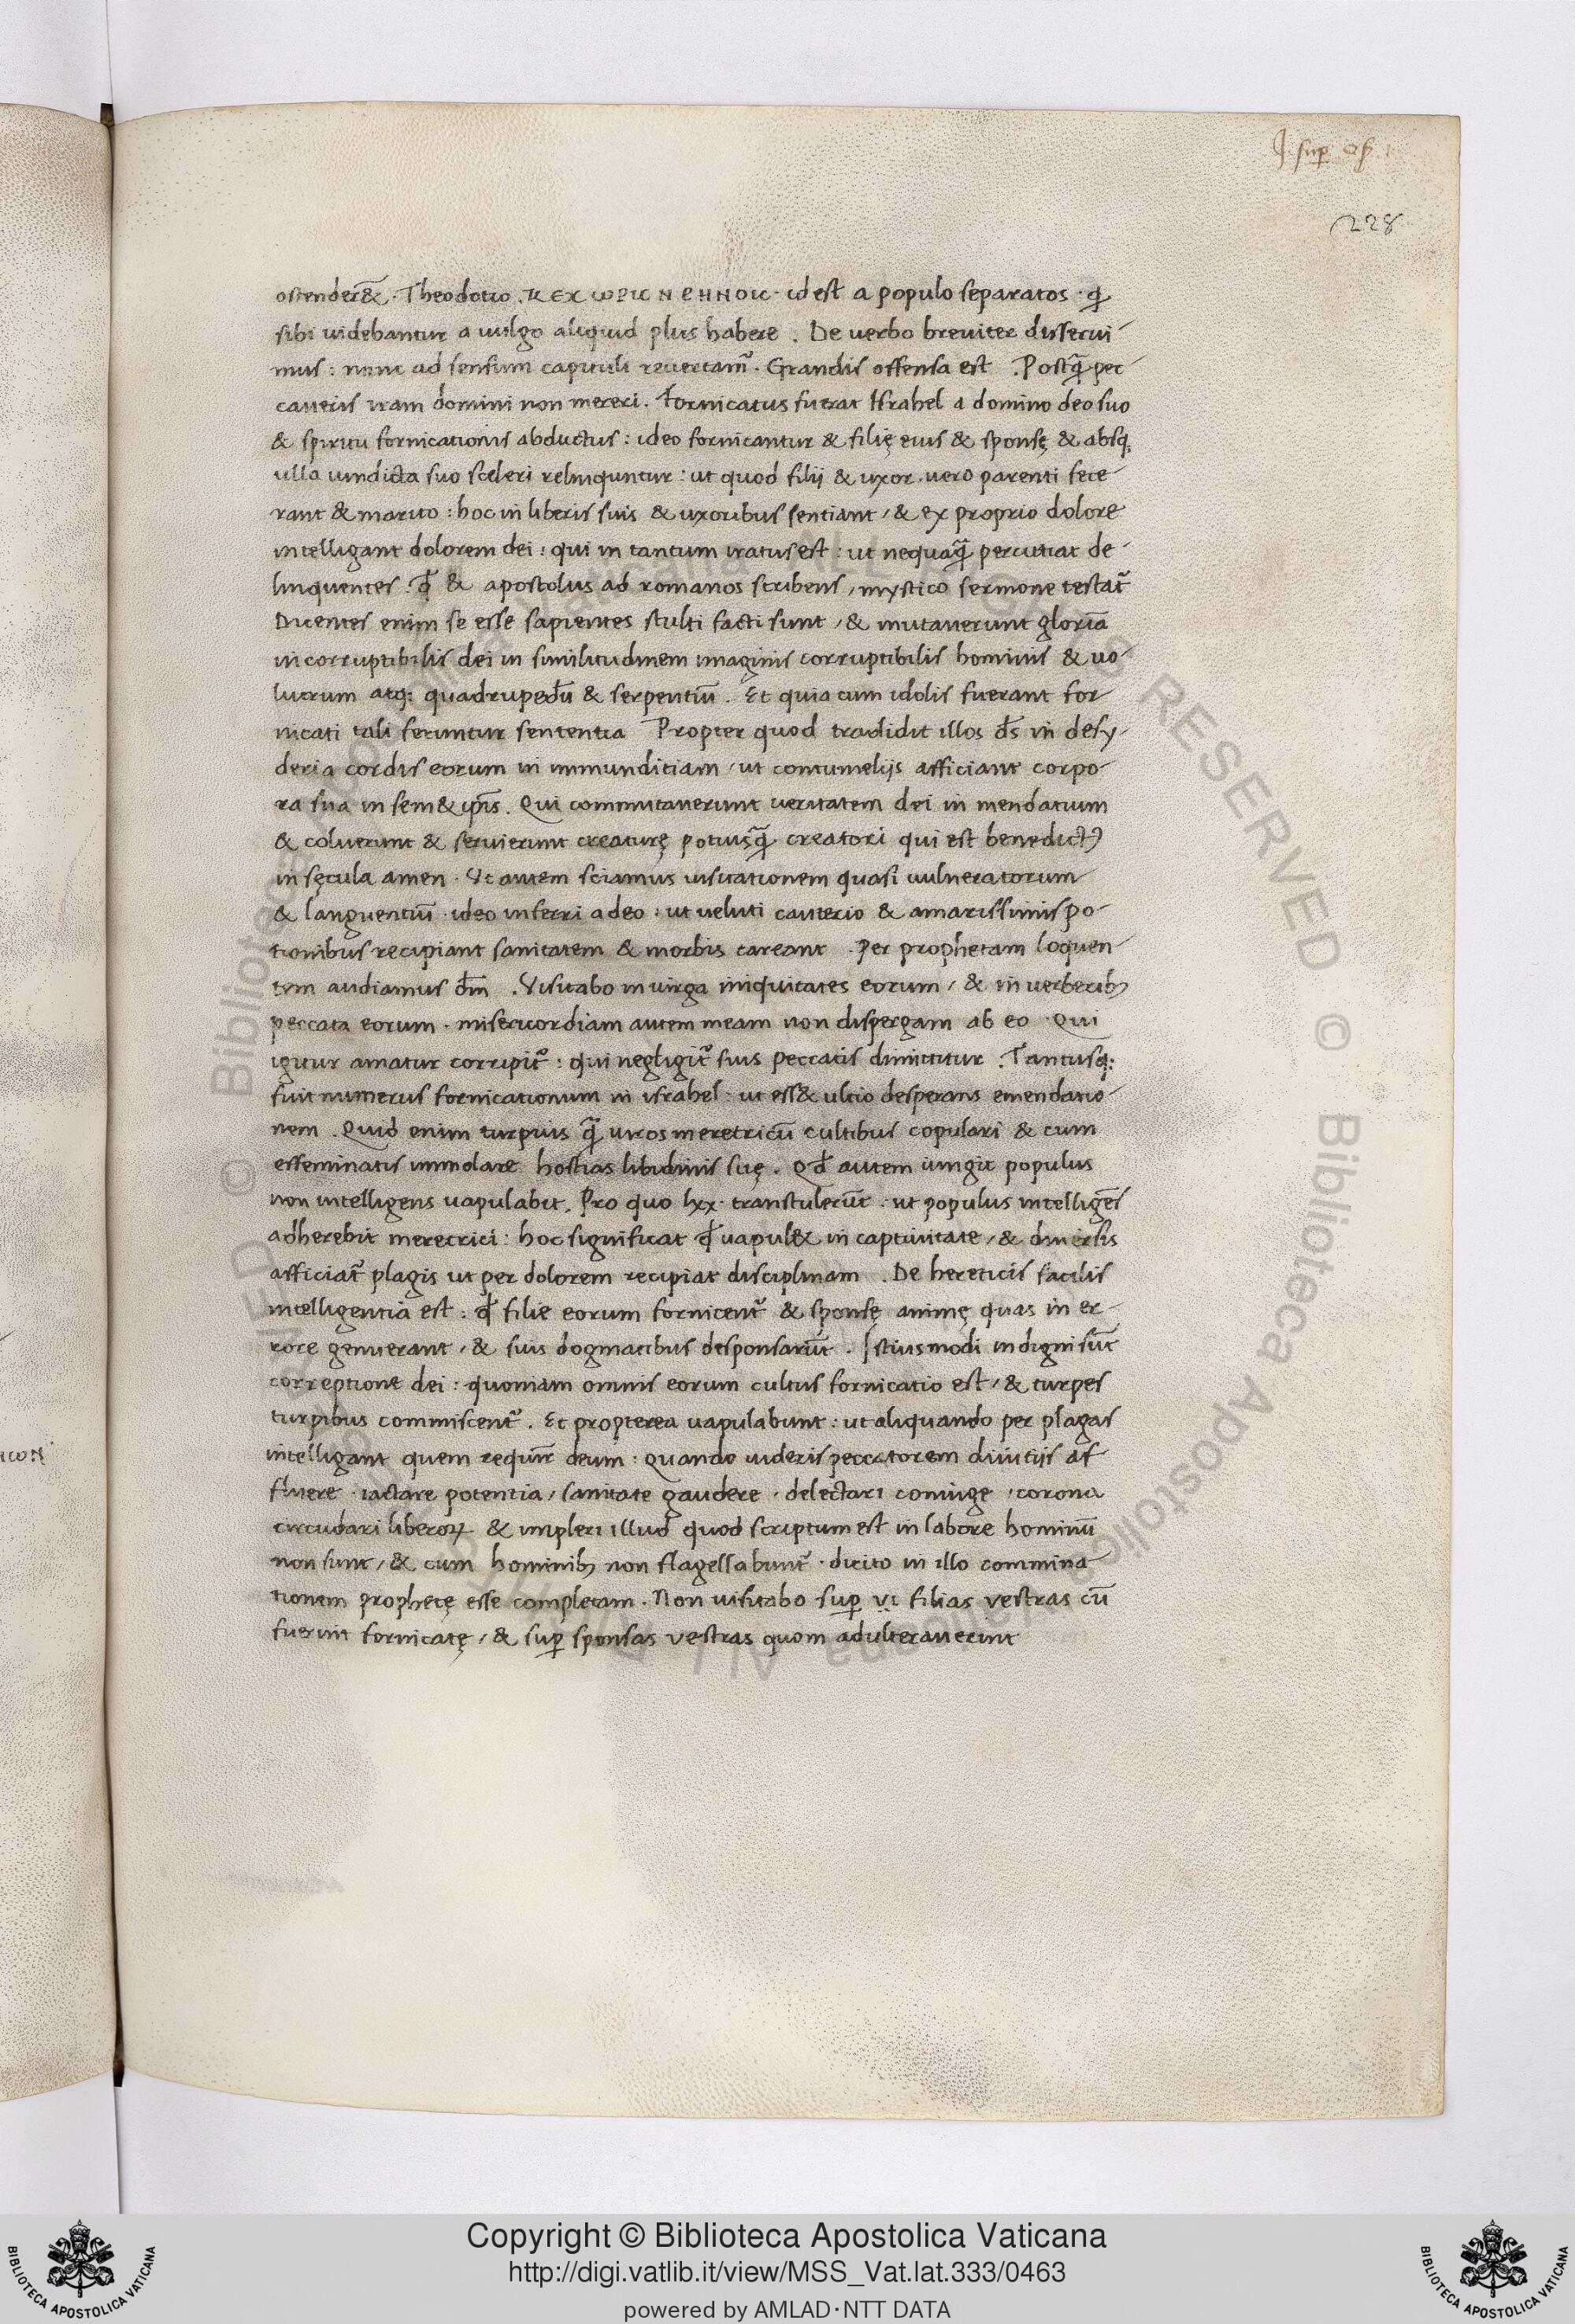 J. sup os
228
ostender&̄. Theodotio. ΚΕΧωΡΙC Ν ΕΝΝΟΙC · id est a populo separatos · q̨
sibi uidebantur a uulgo aliquid plus habere . De uerbo breuiter disserui
mus : nunc ad sensum capituli reuertam᷑ . Grandis offensa est . Postq̄ pec
caueris iram domini non mereri . Fornicatus fuerat Israhel a domino deo suo
& spiritu fornicationis abductus : ideo fornicantur & filię eius & sponsę & absq;
ulla uindicta suo sceleri relinquntur : ut quod filij & uxor uero parenti fece
rant & marito : hoc in liberis suis & uxoribus sentiant / & ex proprio dolore
intelligant dolorem dei : qui in tantum iratus est : ut nequaq̄ percutiat de
linquentes . qđ & apostolus ad romanos scribens / mystico sermone testat᷑
Dicentes enim se esse sapientes stulti facti sunt / & mutauerunt gloriā
incorruptibilis dei in similitudinem imaginis corruptibilis hominis & uo
lucrum atq; quadrupedū & serpentiū . Et quia cum idolis fuerant for
nicati tali feriuntur sententia Propter quod tradidit illos d̄s in desy
deria cordis eorum in immunditiam / ut contumelijs afficiant corpo
ra sua in sem& ip̄is . Qui commutauerunt ueritatem dei in mendatium
& coluerunt & seruierunt creaturę potiusq̄ creatori qui est benedictꝰ
in sęcula amen . Vt autem sciamus uisitationem quasi uulneratorum
& languentiū · ideo inferri a deo : ut ueluti cauterio & amarissimis po
tionibus recipiant sanitatem & morbis careant . Per prophetam loquen
tem audiamus dm̄ . Visitabo in uirga iniquitates eorum / & in uerberibꝫ
peccata eorum · misericordiam autem meam non dispergam ab eo · Qui
igitur amatur corripit᷑ : qui negligit᷑ suis peccatis dimittitur . Tantusq;
fuit numerus fornicationum in israhel : ut ess& ultio desperans emendatio
nem . Quid enim turpius q̄ uiros meretricū cultibus copulari & cum
effeminatis immolare hostias libidinis suę . Qđ autem iungit populus
non intelligens uapulabit . Pro quo lxx · transtulerūt : ut populus intelligēs
adherebit meretrici : hoc significat qđ uapul& in captiuitate / & diuersis
afficiat᷑ plagis ut per dolorem recipiat disciplinam . De hereticis facilis
intelligentia est : qđ filie eorum fornicent᷑ & sponsę animę quas in er
rore genuerant / & suis dogmatibus desponsarūt . Istiusmodi indigni sūt
correptione dei : quoniam omnis eorum cultus fornicatio est / & turpes
turpibus commiscent᷑ . Et propterea uapulabunt : ut aliquando per plagas
intelligant quem requirūt deum : Quando uideris peccatorem diuitijs af
fluere · iactare potentia / sanitate gaudere · delectari coniuge / corona
circūdari liberoꝝ & impleri illud quod scriptum est in labore hominū
non sunt / & cum hominibꝫ non flagellabunt᷑ · dicito in illo commina
tionem prophetę esse completam . Non uisitabo sup̱ vi filias vestras cū
fuerint fornicatę / & sup̱ sponsas vestras quom adulterauerint
Copyright © Biblioteca Apostolica Vaticana
http://digi.vatlib.it/view/MSS_Vat.lat.333/0463
powered by AMLAD·NTT DATA